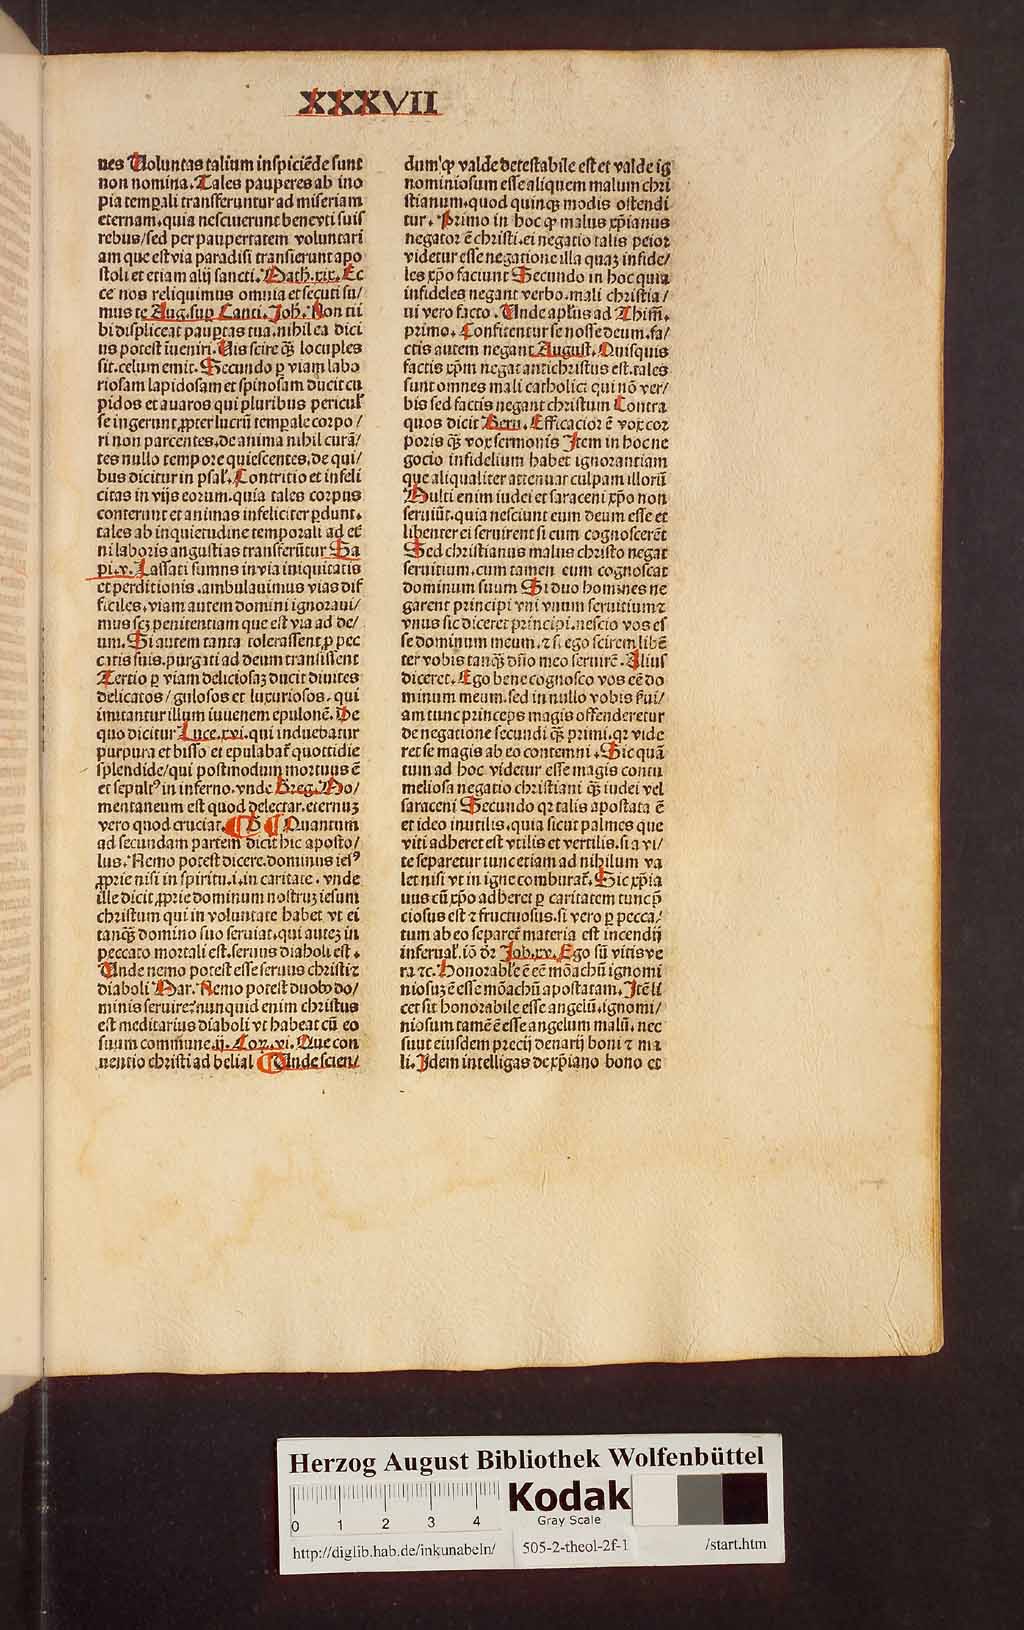 XXXVII
nes Uoluntas talium inspiciēde sunt
non nomina. Tales pauperes ab ino
pia temꝑali transferuntur ad miseriam
eternam. quia nesciuerunt bene vti suis
rebus/ sed per paupertatem voluntari
am que est via paradisi transierunt apo
stoli et etiam alij sancti. Math. xix. Ec
ce nos reliquimus omnia et secuti su/
mus te Aug. suꝑ Canti. Joh. Non ti
bi displiceat pauꝑtas tua. nihil ea dici
us potest īueniri. Uis scire qȝ locuples
sit. celum emit. Secundo ꝑ viam labo
riosam lapidosam et spinosam ducit cu
pidos et auaros qui pluribus pericul'
se ingerunt ꝓpter lucrū temꝑale corpo/
ri non parcentes. de anima nihil curā/
tes nullo tempore quiescentes. de qui/
bus dicitur in psal'. Contritio et infeli
citas in vijs eorum. quia tales corpus
conterunt et animas infeliciter ꝑdunt.
tales ab inquietudine temporali ad et̄
ni laboris angustias transferūtur Sa
pi. v. Lassati sumus in via iniquitatis
et perditionis. ambulauimus vias dif
ficiles. viam autem domini ignoraui/
mus scȝ penitentiam que est via ad de/
um. Si autem tanta tolerassent ꝓ pec
catis suis. purgati ad deum transissent
Tertio ꝑ viam deliciosaȝ ducit diuites
delicatos/ gulosos et luxuriosos. qui
imitantur illum iuuenem epulonē. De
quo dicitur Luce. xvi. qui induebatur
purpura et bisso et epulabat̄ quottidie
splendide/ qui postmodum mortuus ē
et sepultꝰ in inferno. vnde Greg. Mo/
mentaneum est quod delectat. eternuȝ
vero quod cruciat. ¶ B ¶ Quantum
ad secundam partem dicit hic aposto/
lus. Nemo potest dicere. dominus iesꝰ
ꝓprie nisi in spiritu. i. in caritate. vnde
ille dicit ꝓprie dominum nostruȝ iesum
christum qui in voluntate habet vt ei
tanqȝ domino suo seruiat. qui auteȝ in
peccato mortali est. seruus diaboli est.
Unde nemo potest esse seruus christi ⁊
diaboli Mar. Nemo potest duobꝰ do/
minis seruire. nunquid enim christus
est meditarius diaboli vt habeat cū eo
suum commune. ij. Cor. vi. Que con
uentio christi ad belial ¶ Unde scien/
dum ꝙ valde detestabile est et valde ig
nominiosum esse aliquem malum chri
stianum. quod quinqȝ modis ostendi
tur. Primo in hoc ꝙ malus xp̄ianus
negator ē christi. ei negatio talis peior
videtur esse negatione illa quaȝ infide/
les xp̄o faciunt Secundo in hoc quia
infideles negant verbo. mali christia/
ni vero facto. Unde apl'us ad Thim.
primo. Confitentur se nosse deum. fa/
ctis autem negant August. Quisquis
factis xp̄m negat antichristus est. tales
sunt omnes mali catholici qui nō ver/
bis sed factis negant christum Contra
quos dicit Bern. Efficacior ē vox cor
poris qȝ vox sermonis Item in hoc ne
gocio infidelium habet ignorantiam
que aliqualiter attenuat culpam illorū
Multi enim iudei et saraceni xp̄o non
seruiūt. quia nesciunt eum deum esse et
libenter ei seruirent si eum cognoscerēt
Sed christianus malus christo negat
seruitium. cum tamen eum cognoscat
dominum suum Si duo homines ne
garent principi vni vnum seruitium ⁊
vnus sic diceret principi. nescio vos es
se dominum meum. ⁊ si ego scirem libē
ter vobis tanqȝ dn̄o meo seruirē. Alius
diceret. Ego bene cognosco vos eē do
minum meum. sed in nullo vobis ẜui/
am tunc princeps magis offenderetur
de negatione secundi qȝ primi. qr vide
ret se magis ab eo contemni. Sic quā
tum ad hoc videtur esse magis contu
meliosa negatio christiani qȝ iudei vel
saraceni Secundo qr talis apostata ē
et ideo inutilis. quia sicut palmes que
viti adheret est vtilis et vertilis. si a vi/
te separetur tunc etiam ad nihilum va
let nisi vt in igne comburat̄. Sic xp̄ia
nus cū xp̄o adheret ꝑ caritatem tunc p̄
ciosus est ⁊ fructuosus. si vero ꝑ pecca/
tum ab eo separet̄ materia est incendij
infernal'. iō dr̄ Joh. xv. Ego sū vitis ve
ra ⁊c. Honorabile ē eē mōachū ignomi
niosuȝ ē esse mōachū apostatam. Itē li
cet sit honorabile esse angelū. ignomi/
niosum tamē ē esse angelum malū. nec
sunt eiusdem precij denarij boni ⁊ ma
li. Idem intelligas de xp̄iano bono et
Herzog August Bibliothek Wolfenbüttel
0 1 2 3 4
Kodak
Gray Scale
http://diglib.hab.de/inkunabeln/ 505-2-theol-2f-1 /start.htm